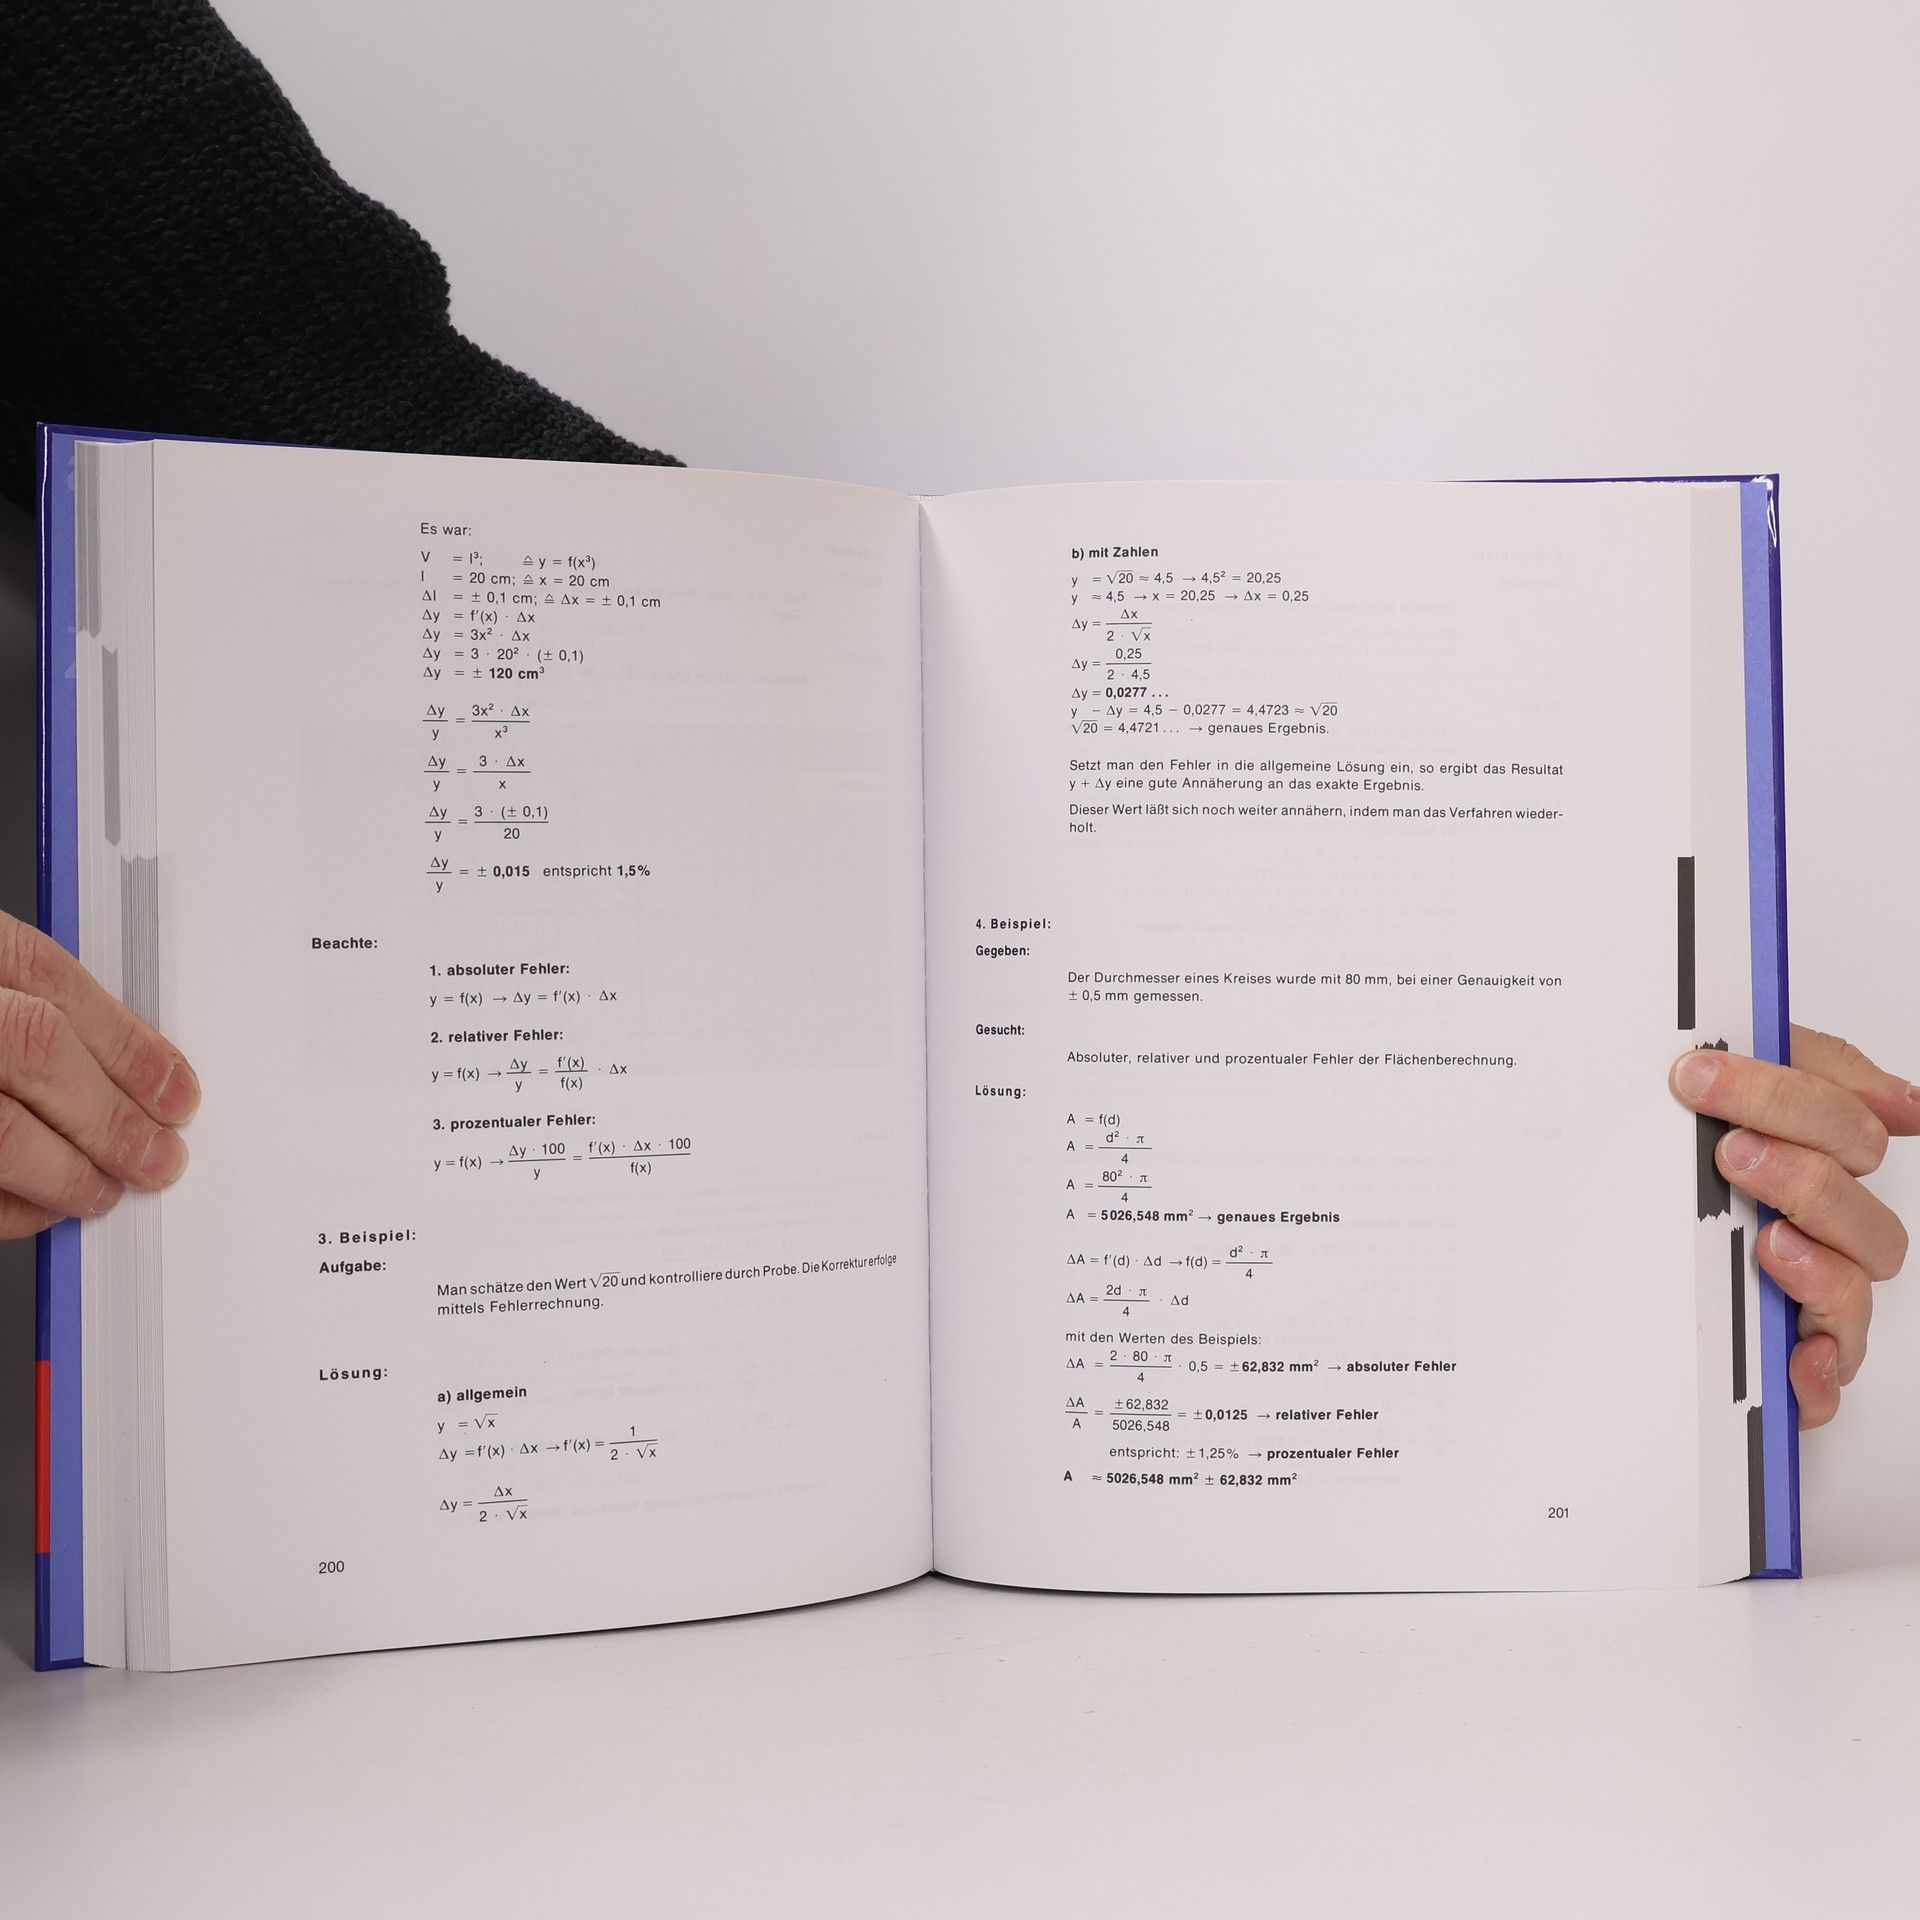 Es war:
V = l³; ≙ y = f(x³)
l = 20 cm; ≙ x = 20 cm
Δl = ± 0,1 cm; ≙ Δx = ± 0,1 cm
Δy = f′(x) · Δx
Δy = 3x² · Δx
Δy = 3 · 20² · (± 0,1)
Δy = ± 120 cm³
Δy/y = 3x² · Δx/x³
Δy/y = 3 · Δx/x
Δy/y = 3 · (± 0,1)/20
Δy/y = ± 0,015 entspricht 1,5%
Beachte:
1. absoluter Fehler:
y = f(x) → Δy = f′(x) · Δx
2. relativer Fehler:
y = f(x) → Δy/y = f′(x)/f(x) · Δx
3. prozentualer Fehler:
y = f(x) → Δy · 100/y = f′(x) · Δx · 100/f(x)
3. Beispiel:
Aufgabe:
Man schätze den Wert √20 und kontrolliere durch Probe. Die Korrektur erfolge
mittels Fehlerrechnung.
Lösung:
a) allgemein
y = √x
Δy = f′(x) · Δx → f′(x) = 1/2 · √x
Δy = Δx/2 · √x
200
b) mit Zahlen
y = √20 ≈ 4,5 → 4,5² = 20,25
y ≈ 4,5 → x = 20,25 → Δx = 0,25
Δy = Δx/2 · √x
Δy = 0,25/2 · 4,5
Δy = 0,0277 ...
y – Δy = 4,5 – 0,0277 = 4,4723 ≈ √20
√20 = 4,4721 ... → genaues Ergebnis.
Setzt man den Fehler in die allgemeine Lösung ein, so ergibt das Resultat
y + Δy eine gute Annäherung an das exakte Ergebnis.
Dieser Wert läßt sich noch weiter annähern, indem man das Verfahren wieder-
holt.
4. Beispiel:
Gegeben:
Der Durchmesser eines Kreises wurde mit 80 mm, bei einer Genauigkeit von
± 0,5 mm gemessen.
Gesucht:
Absoluter, relativer und prozentualer Fehler der Flächenberechnung.
Lösung:
A = f(d)
A = d² · π/4
A = 80² · π/4
A = 5026,548 mm² → genaues Ergebnis
ΔA = f′(d) · Δd → f(d) = d² · π/4
ΔA = 2d · π/4 · Δd
mit den Werten des Beispiels:
ΔA = 2 · 80 · π/4 · 0,5 = ±62,832 mm² → absoluter Fehler
ΔA/A = ±62,832/5026,548 = ±0,0125 → relativer Fehler
entspricht: ±1,25% → prozentualer Fehler
A ≈ 5026,548 mm² ± 62,832 mm²
201